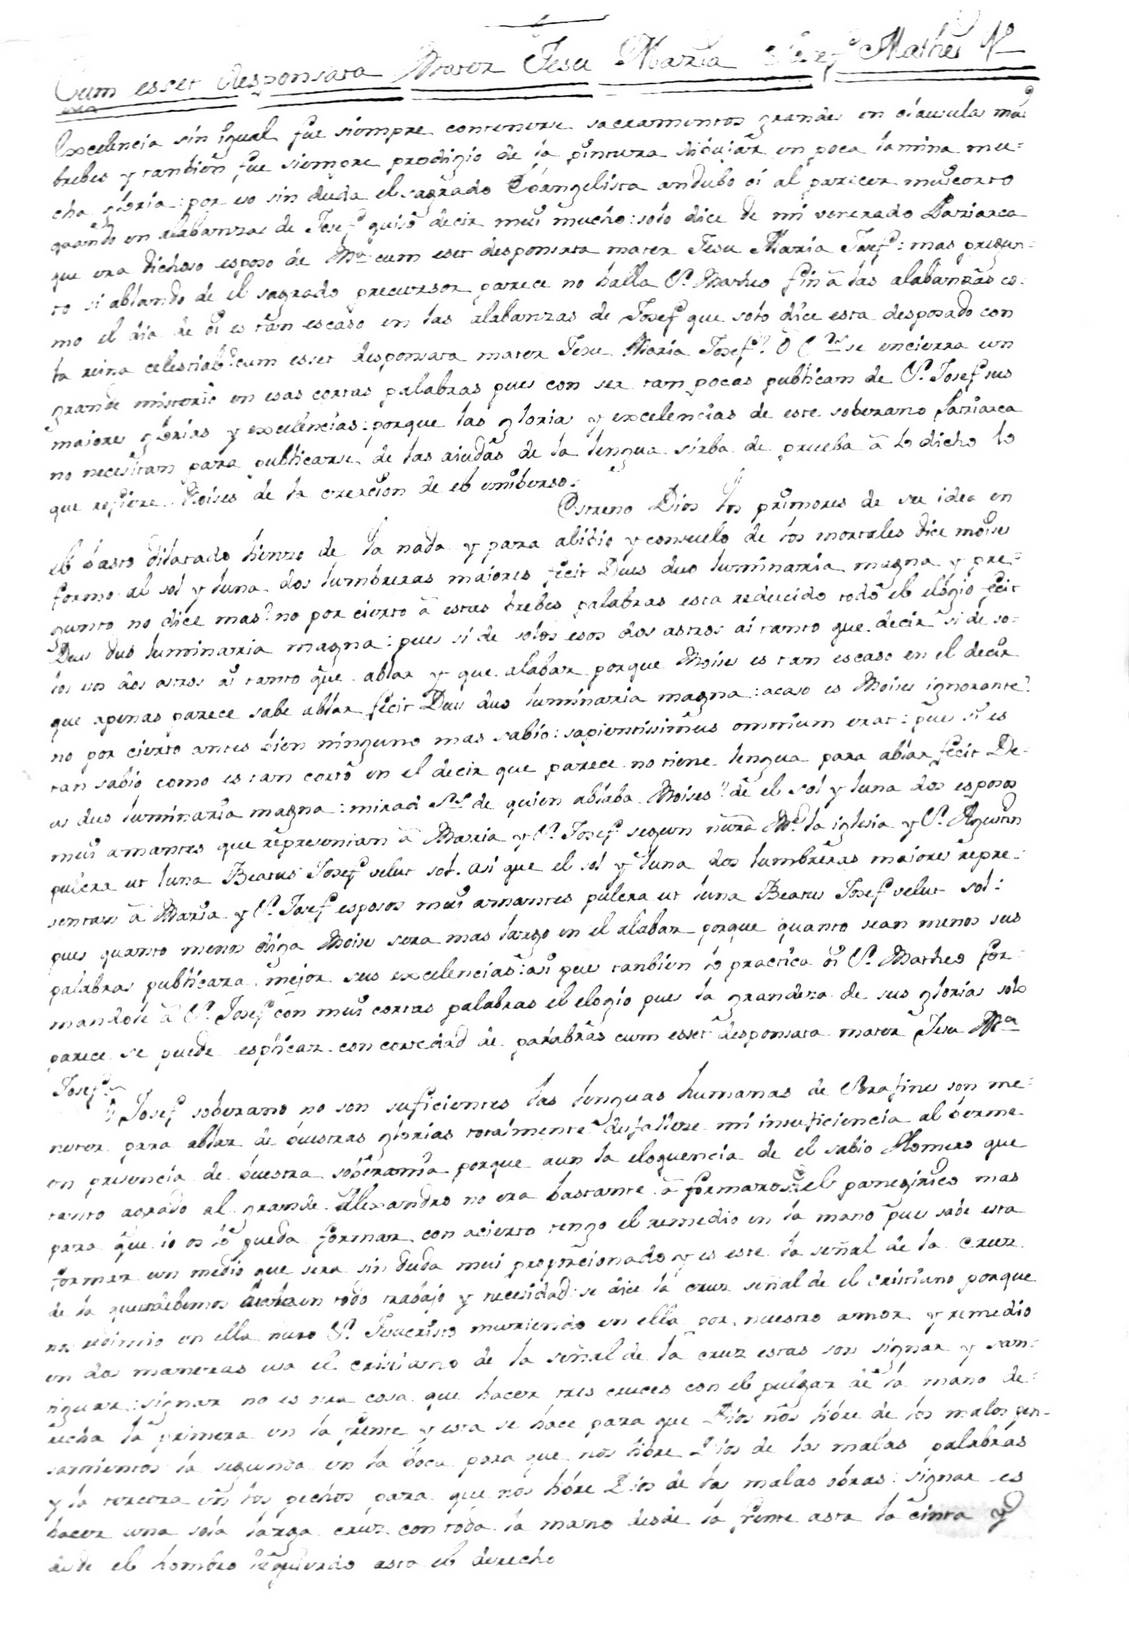 Cum esset desponsata Mater Jesu Maria Josef Mathei 1º
Excelencia sin igual fue siempre contenerse sacramentos grandes en clausula mui
brebes y tambien fue siempre prodigio de la pintura dibujar en poca lamina mu-
cha gloria: por eso sin duda el sagrado Evangelista andubo oi al parecer mui corto
quando en alabanzas de Josef quiso decir mui mucho: solo dice de mi venerado Patriarca
que era dichoso esposo de Mª cum eset desponsata mater Jesu Maria Josef: mas pregun-
to si ablando de el sagrado precursor parece no halla S. Matheo fin â las alabanzas co-
mo el dia de oi es tan escaso en las alabanzas de Josef que solo dice esta desposado con
la reina celestial? cum esset desponsata mater Jesu Maria Josef? O se encierra un
grande misterio en esas cortas palabras pues con ser tam pocas publicam de S. Josef sus
maiores glorias y excelencias: porque las glorias y excelencias de este soberano Patriarca
no necesitam para publicarse de las aiudas de la lengua sirba de prueba â lo dicho lo
que refiere Moises de la creacion de el uniberso.
Estreno Dios los primores de su idea en
el basto dilatado lienzo de la nada y para alibio y consuelo de los mortales dice moises
formo al sol y luna dos lumbreras maiores fecit Deus duo luminaria magna y pre-
gunto no dice mas? no por cierto â estas brebes palabras esta reducido todo el elogio fecit
Deus duo luminaria magna: pues si de solos esos dos astros ai tanto que decir si de so-
los esos dos astros ai tanto que ablar y que alabar porque Moises es tam escaso en el decir
que apenas parece sabe ablar fecit Deus duo luminaria magna: acaso es Moises ignorante?
no por cierto antes bien ninguno mas sabio: sapientissimus omnium erat: pues si es
tan sabio como es tam corto en el decir que parece no tiene lengua para ablar fecit De-
us duo luminaria magna: mirad Srs de quien ablaba Moises? de el sol y luna dos esposos
mui amantes que representan â Maria y S. Josef segun nura Me la iglesia y S. Agustin
pulcra ut luna Beatus Josef velut sol. asi que el sol y luna dos lumbreras maiores repre-
sentan â Maria y S. Josef esposos mui amantes pulcra ut luna Beatus Josef velut sol:
pues quanto menos diga Moises sera mas largo en el alabar porque quanto sean menos sus
palabras publicara mejor sus excelencias: asi pues tanbien lo practica oi S. Matheo for-
mandole â S. Josef con mui cortas palabras el elogio pues la grandeza de sus glorias solo
parece se puede esplicar con cortedad de palabras cum esset desponsata mater Jesu Mª
Josef.
Josef soberano no son suficientes las lenguas humanas de Serafines son me-
nester para ablar de buestras glorias totalmente desfalleze mi insuficiencia al berme
en presencia de buestra soberania porque aun la eloquencia de el sabio Homero que
tanto agrado al grande Alexandro no era bastante â formaros el panegirico mas
para que io os lo pueda formar con acierto tengo el remedio en la mano pues sabe esta
formar un medio que sera sin duda mui proporcionado y es este la señal de la cruz
de la que debemos en todo trabajo y necesidad: se dice la cruz señal de el cristiano porque
nos redimio en ella nuro S. Jesucristo muriendo en ella por nuestro amor y remedio
en dos maneras usa el cristiano de la señal de la cruz estas son signar y san-
tiguar: signar no es otra cosa que hacer tres cruces con el pulgar de la mano de-
recha la primera en la frente y esta se hace para que Dios nos libre de los malos pen-
samientos la segunda en la boca para que nos libre Dios de las malas palabras
y la tercera en los pechos para que nos libre Dios de las malas obras: signar es
hacer una sola larga cruz con toda la mano desde la frente asta la cinta y
desde el hombro izquierdo asta el derecho